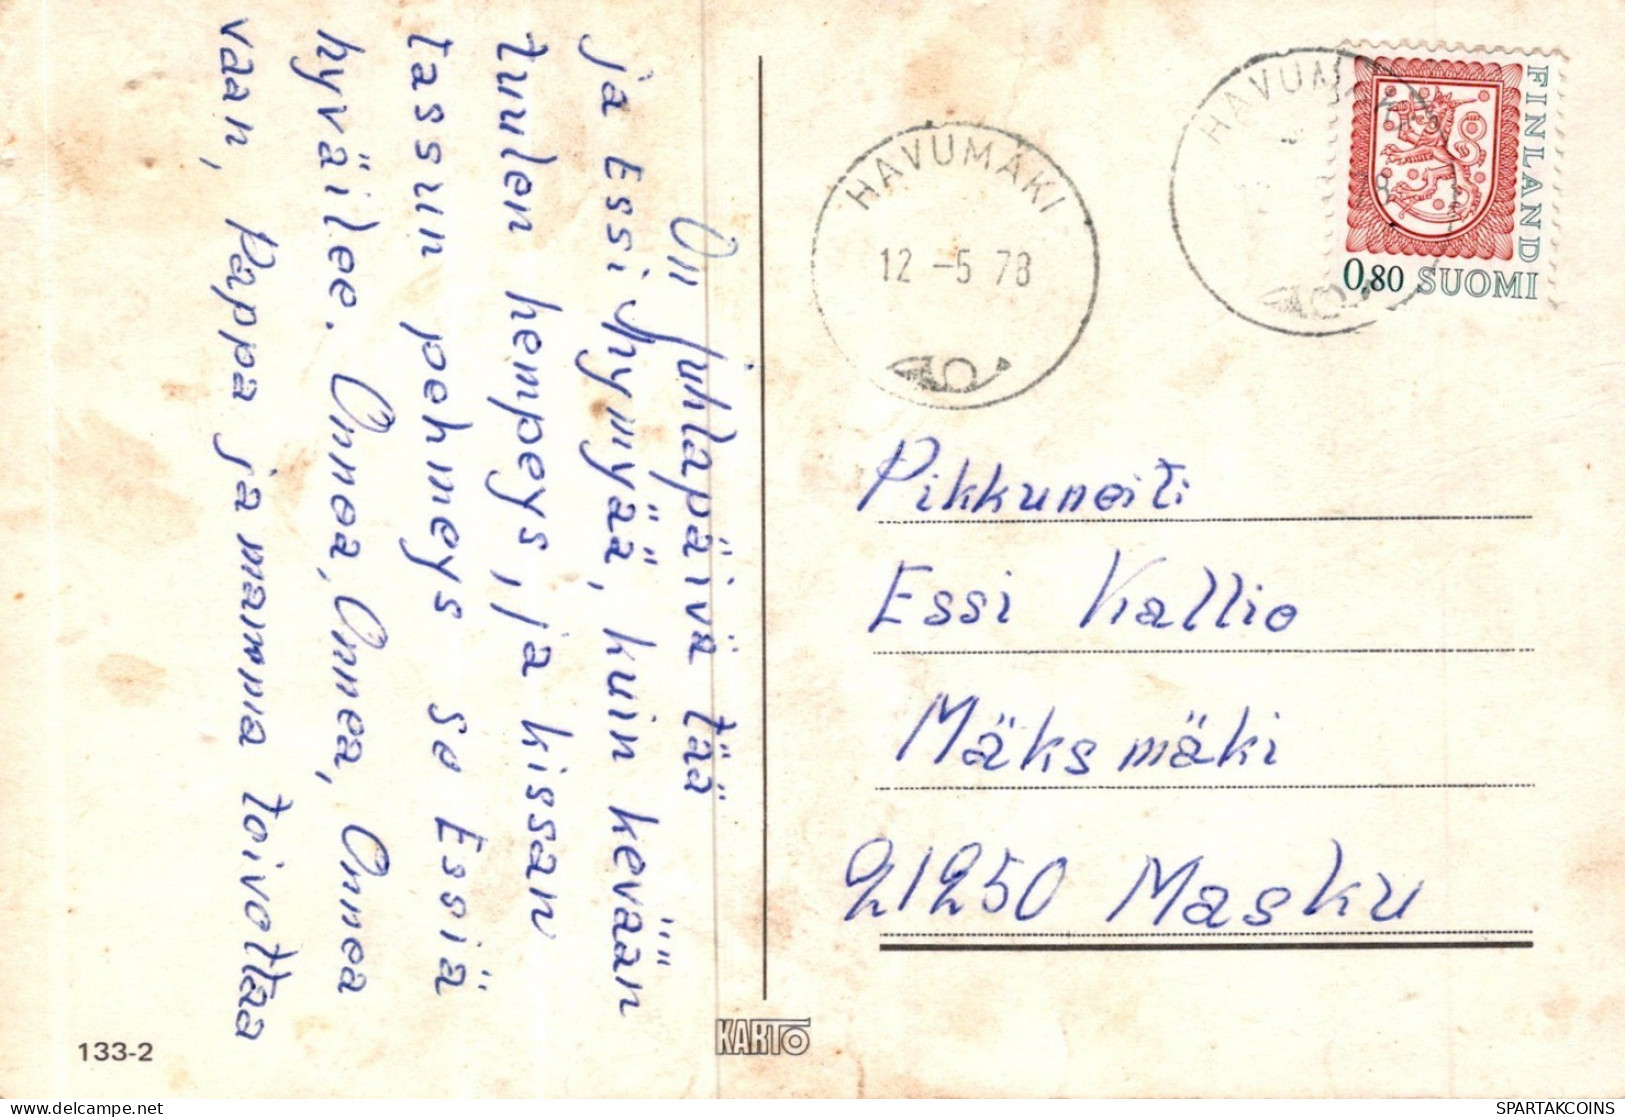 On juhlapäivä tää
ja Essi hymyää, kuin kevään
tuulen hempeys, ja kissan
tassun pehmeys se Essiä
hyväilee. Onnea, Onnea, Onnea
vaan, Pappa ja mamma toivottaa
133-2
KARTO
HAVUMÄKI
12 -5 78
HAVUMÄKI
FINLAND
0,80 SUOMI
Pikkuneiti
Essi Kallio
Mäksmäki
21250 Masku
SPARTAKCOINS